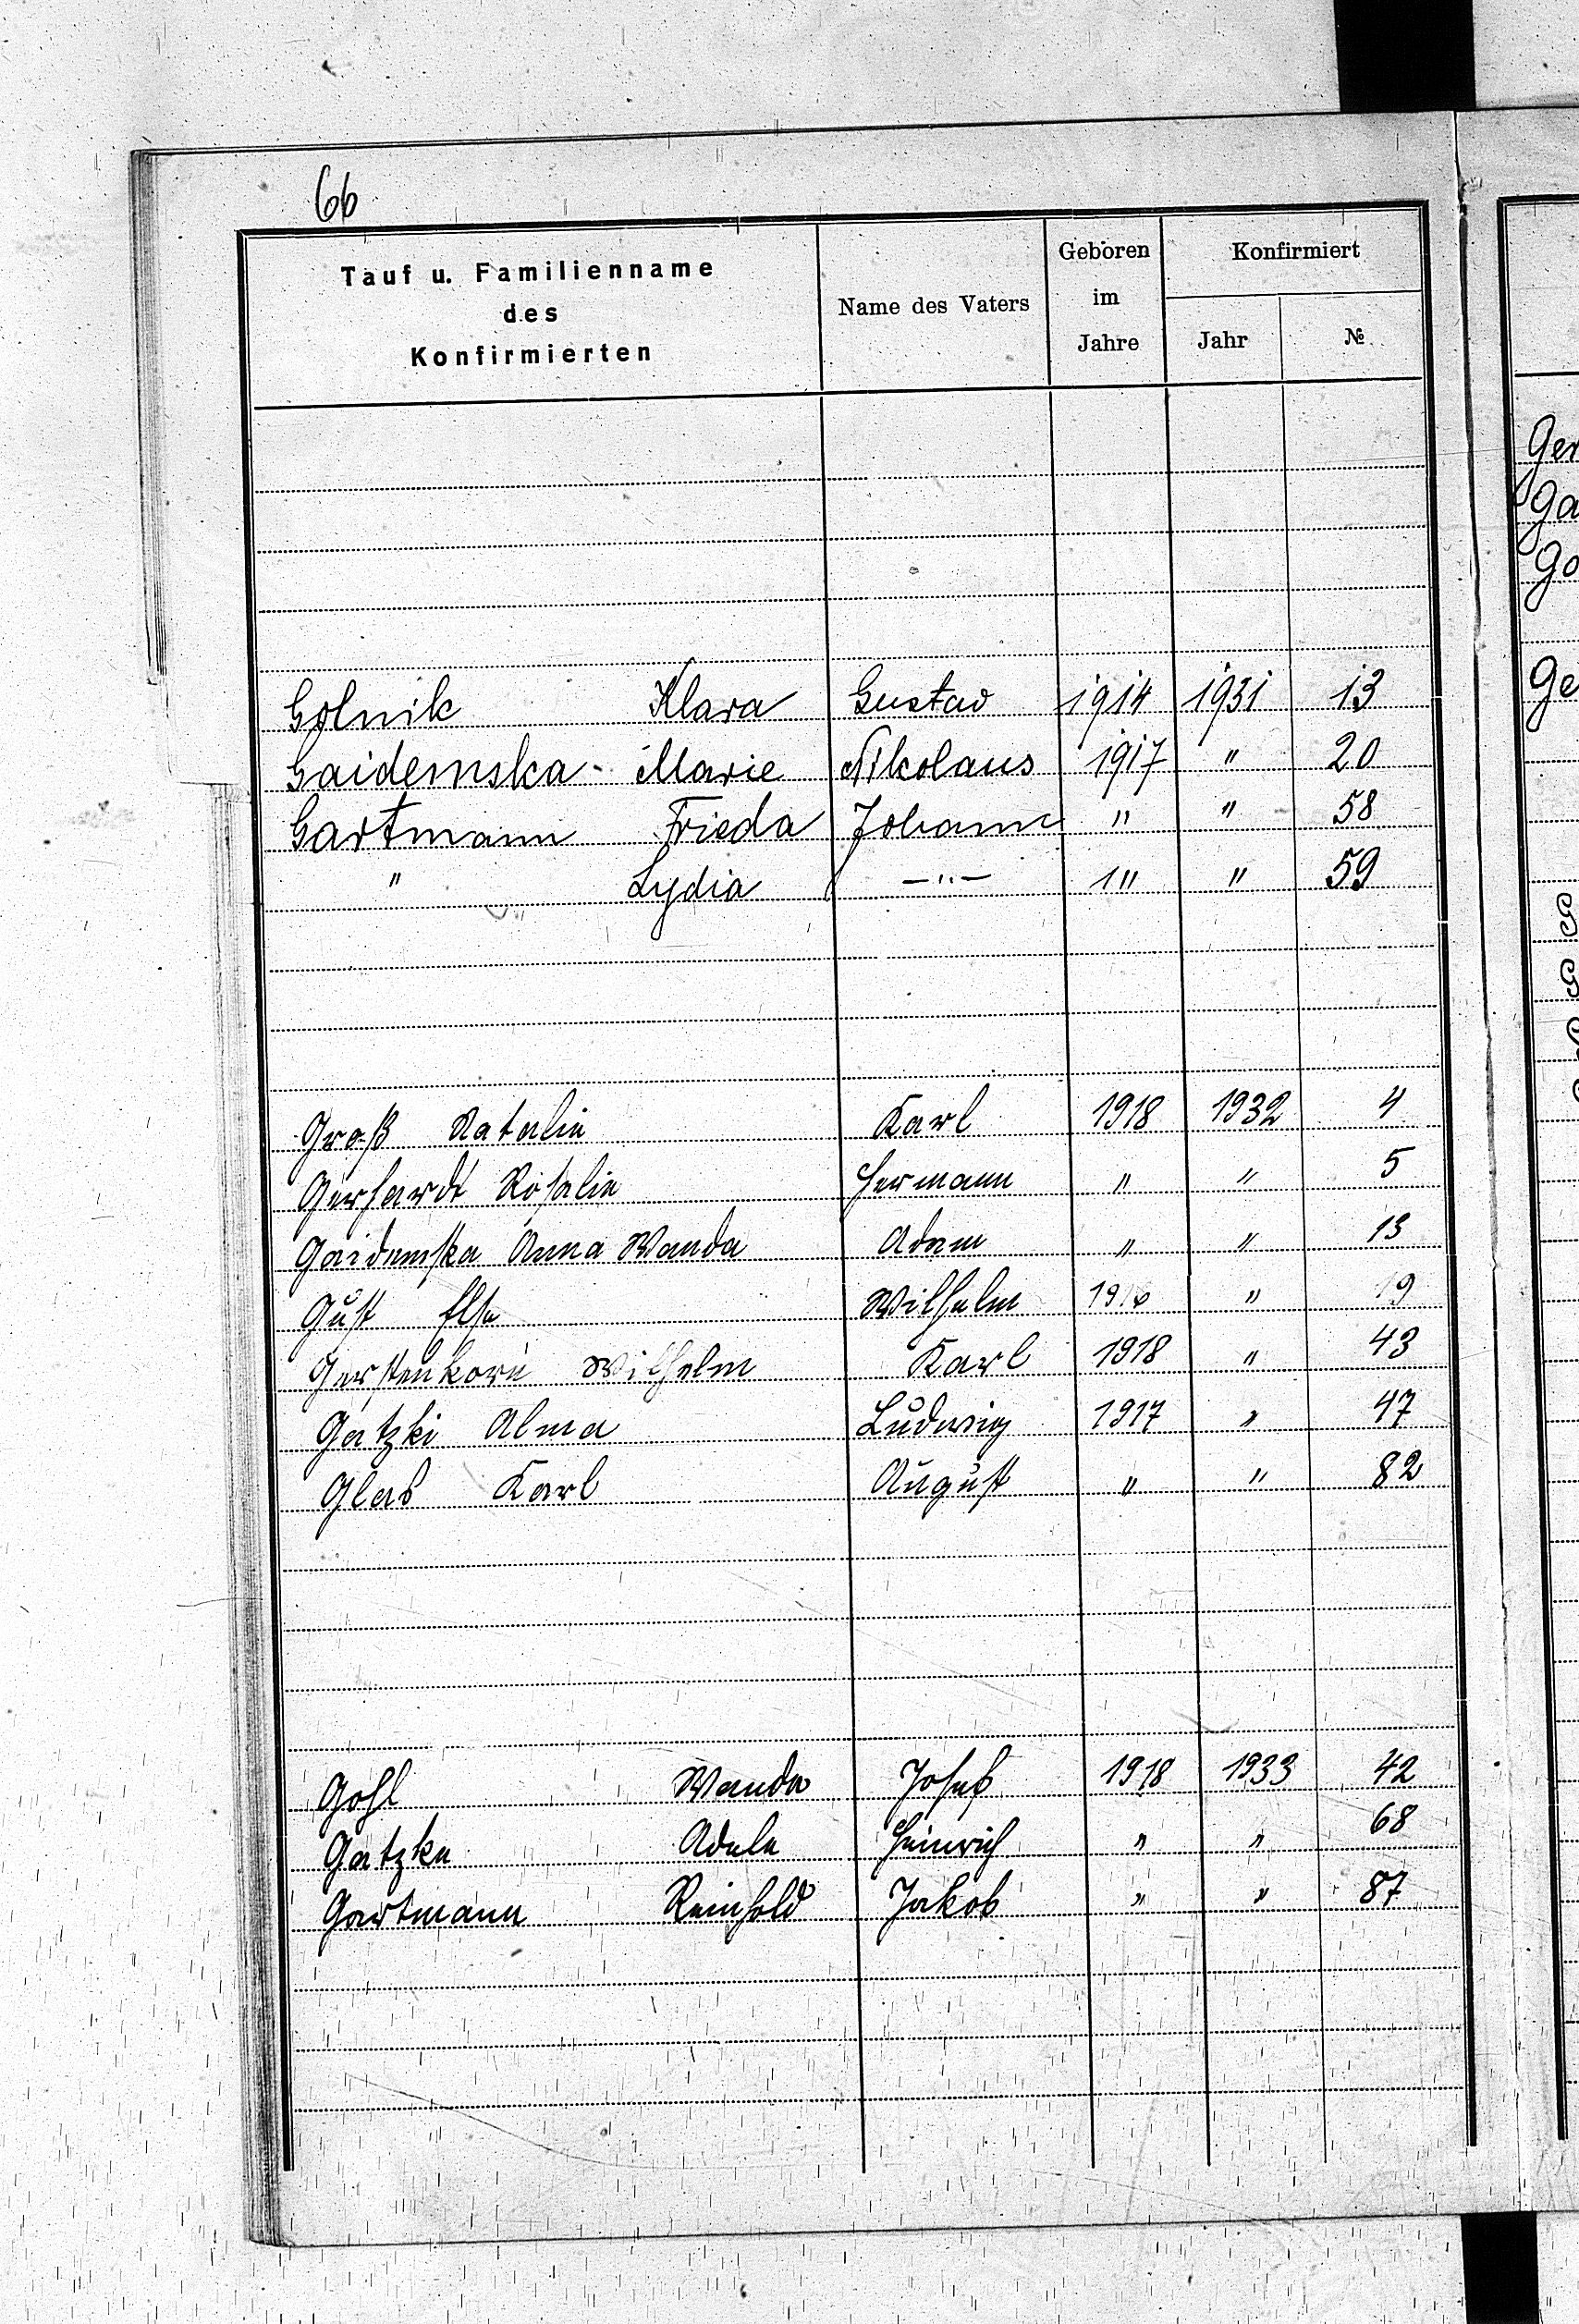 66
Tauf u. Familienname
des
Konfirmierten
Name des Vaters
Geboren
im
Jahre
Konfirmiert
Jahr
№
Golnik Klara Gustav 1914 1931 13
Gaidemska Marie Nikolaus 1917 " 20
Gartmann Frieda Johann " " 58
" Lydia —"— 1" " 59
Groß Natalie Karl 1918 1932 4
Gerhardt Rosalie Hermann " " 5
Gaidemska Anna Wanda Adam " " 13
Gust Else Wilhelm 1916 " 19
Gerstenkorn Wilhelm Karl 1918 " 43
Gatzki Alma Ludwig 1917 " 47
Glas Karl August " " 82
Gohl Wanda Josef 1918 1933 42
Gatzke Adele Heinrich " " 68
Gartmann Reinhold Jakob " " 87
Ger
Ga
Go
Ge